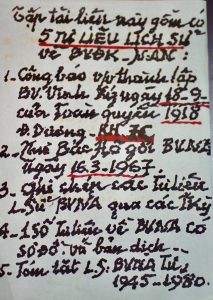 Tập tài liệu này gồm có
5 TƯ LIỆU LỊCH SỬ
về BVĐK-N.AN:
1- Công báo v/v thành lập
BV. Vinh ký ngày 18-9-
của Toàn quyền 1918
Đ. Dương-
2- Thư Bác Hồ gửi BV.N.A
ngày 16.3-1967
3- Ghi chép các Tư liệu
L.Sử BVNA qua các T.Kỳ
4- 1 Số Tư liệu về BVNA có
sơ đồ và bản dịch--
5- Tóm tắt L.S: BVNA Từ
1945-1980.